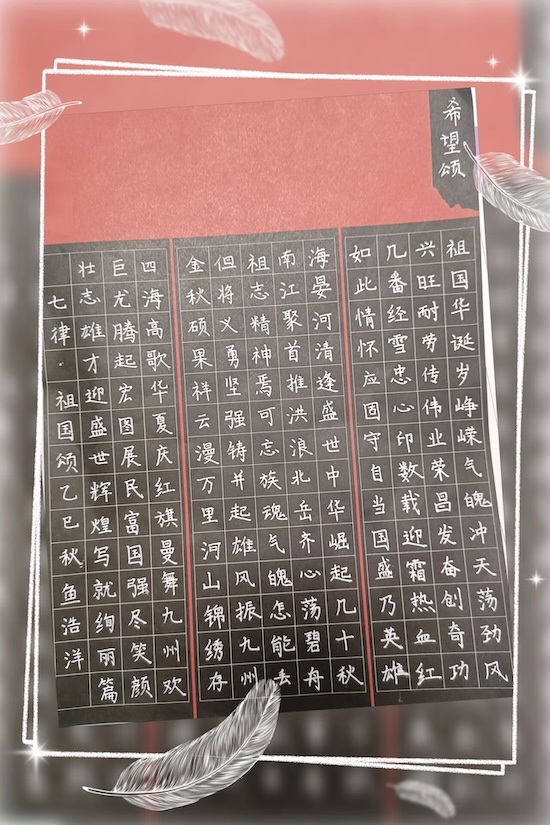 希望颂
祖国华诞岁峥嵘气魄冲天荡劲风
兴旺耐劳传伟业荣昌发奋创奇功
几番经雪忠心印数载迎霜热血红
如此情怀应固守自当国盛乃英雄
海晏河清逢盛世中华崛起几十秋
南江聚首推洪浪北岳齐心荡碧舟
祖志精神焉可忘族魂气魄怎能丢
但将义勇坚强铸并起雄风振九州
金秋硕果祥云漫万里河山锦绣存
四海高歌华夏庆红旗曼舞九州欢
巨龙腾起宏图展民富国强尽笑颜
壮志雄才迎盛世辉煌写就绚丽篇
七律·祖国颂乙巳秋鱼浩洋